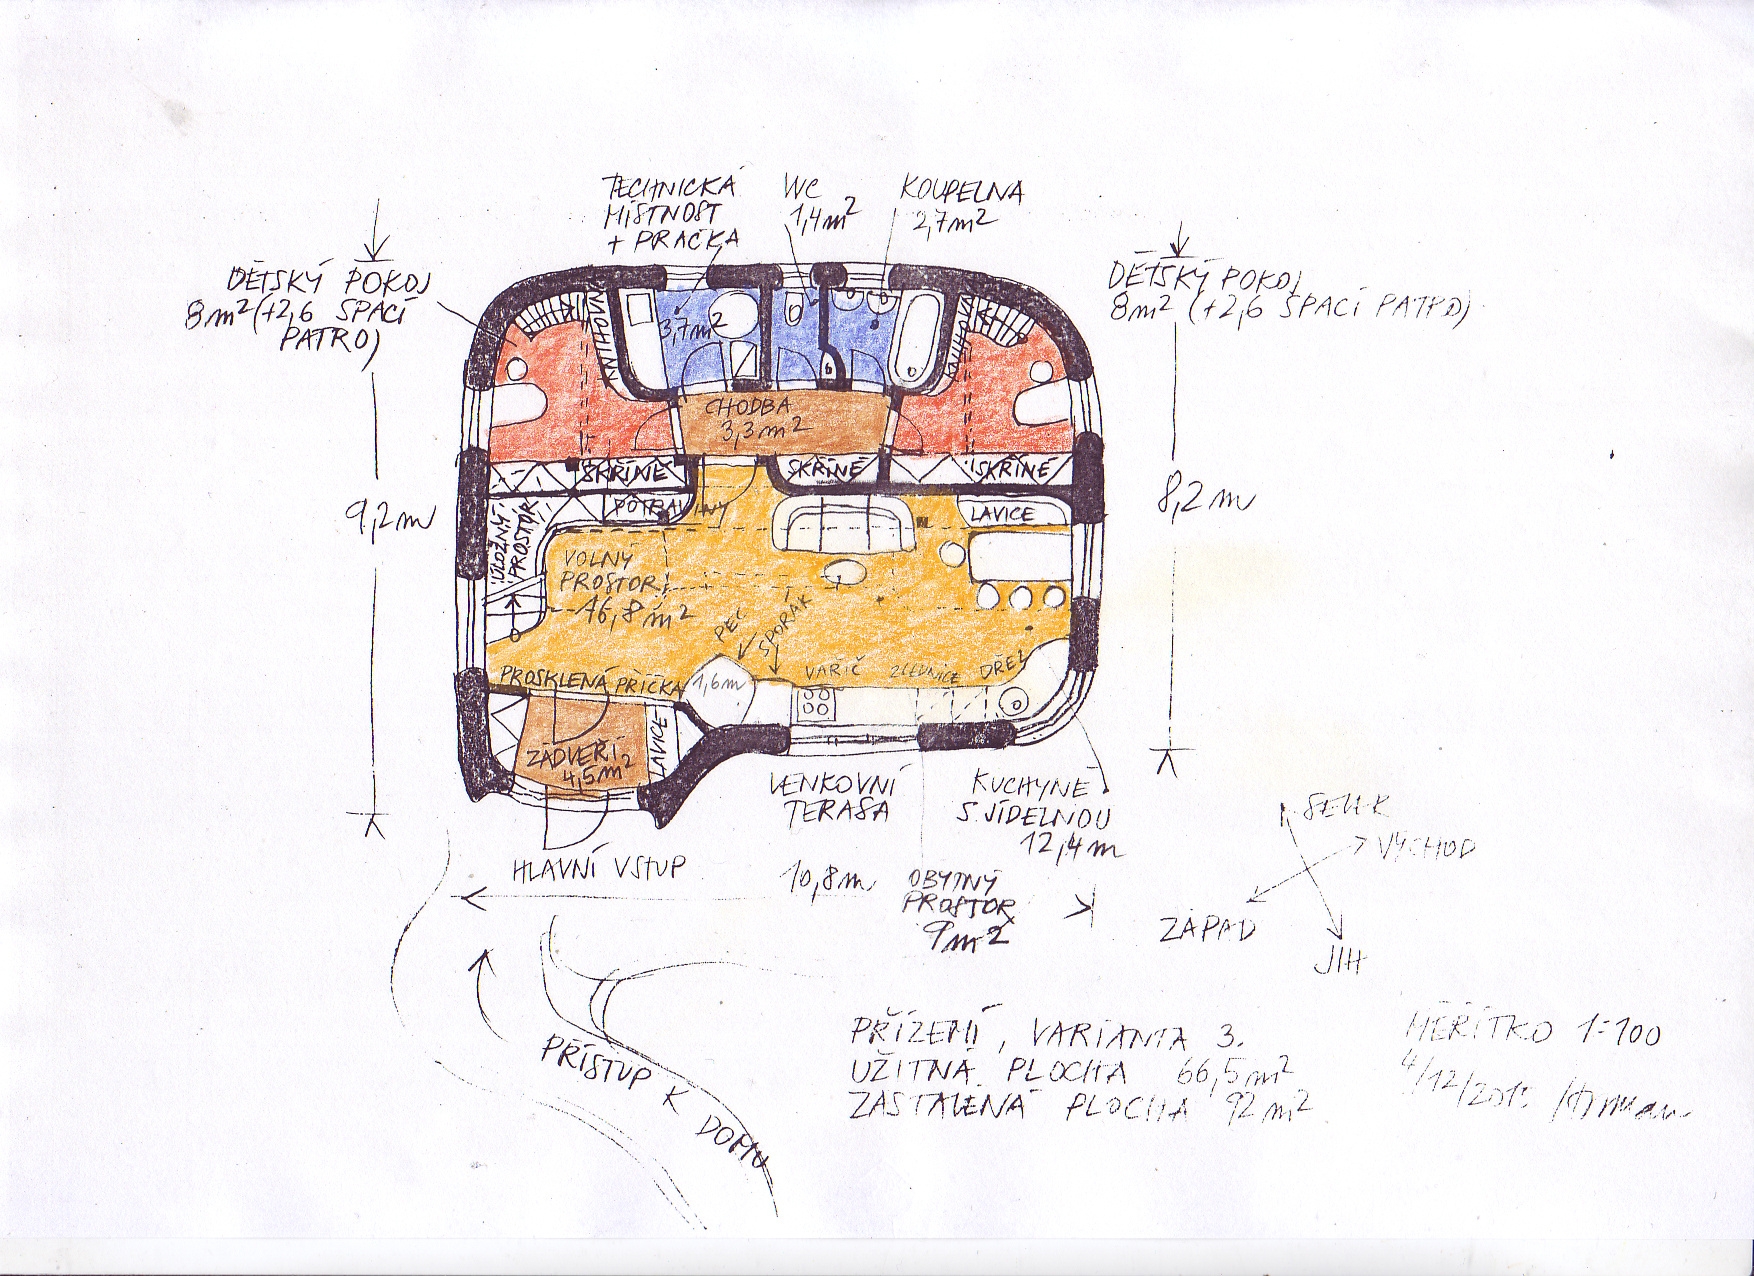 TECHNICKÁ
MÍSTNOST
+ PRAČKA
WC
1,4m²
KOUPELNA
2,7m²
DĚTSKÝ POKOJ
8m² (+2,6 SPACÍ
PATRO)
DĚTSKÝ POKOJ
8m² (+2,6 SPACÍ PATRO)
KNIHOVNA
3,7m²
KNIHOVNA
CHODBA
3,3m²
SKŘÍNĚ
SKŘÍNĚ
SKŘÍNĚ
9,2m
8,2m
POTRAVINY
LAVICE
ÚLOŽNÝ
PROSTOR
VOLNÝ
PROSTOR
16,8m²
PEC
SPORÁK
PROSKLENÁ PŘÍČKA
1,6m
VAŘIČ
LEDNICE
DŘEZ
ZÁDVEŘÍ
4,5m²
LAVICE
VENKOVNÍ
TERASA
KUCHYNĚ
S JÍDELNOU
12,4m
HLAVNÍ VSTUP
10,8m
OBYTNÝ
PROSTOR
9m²
SEVER
VÝCHOD
ZÁPAD
JIH
PŘÍSTUP K DOMU
PŘÍZEMÍ, VARIANTA 3.
UŽITNÁ PLOCHA 66,5m²
ZASTAVENÁ PLOCHA 92m²
MĚŘÍTKO 1:100
4/12/201